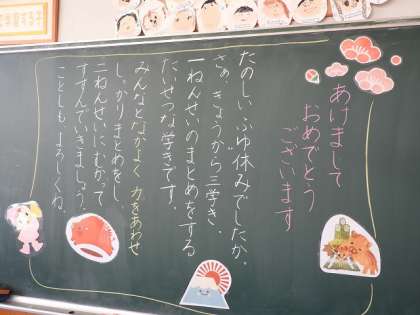 あけまして
おめでとう
ございます
たのしい ふゆ休みでしたか。
さあ、きょうから三学き、
一ねんせいのまとめをする
たいせつな学きです。
みんなとなかよく 力をあわせ
しっかりまとめをし、
二ねんせいにむかって
すすんでいきましょう。
ことしも よろしくね。